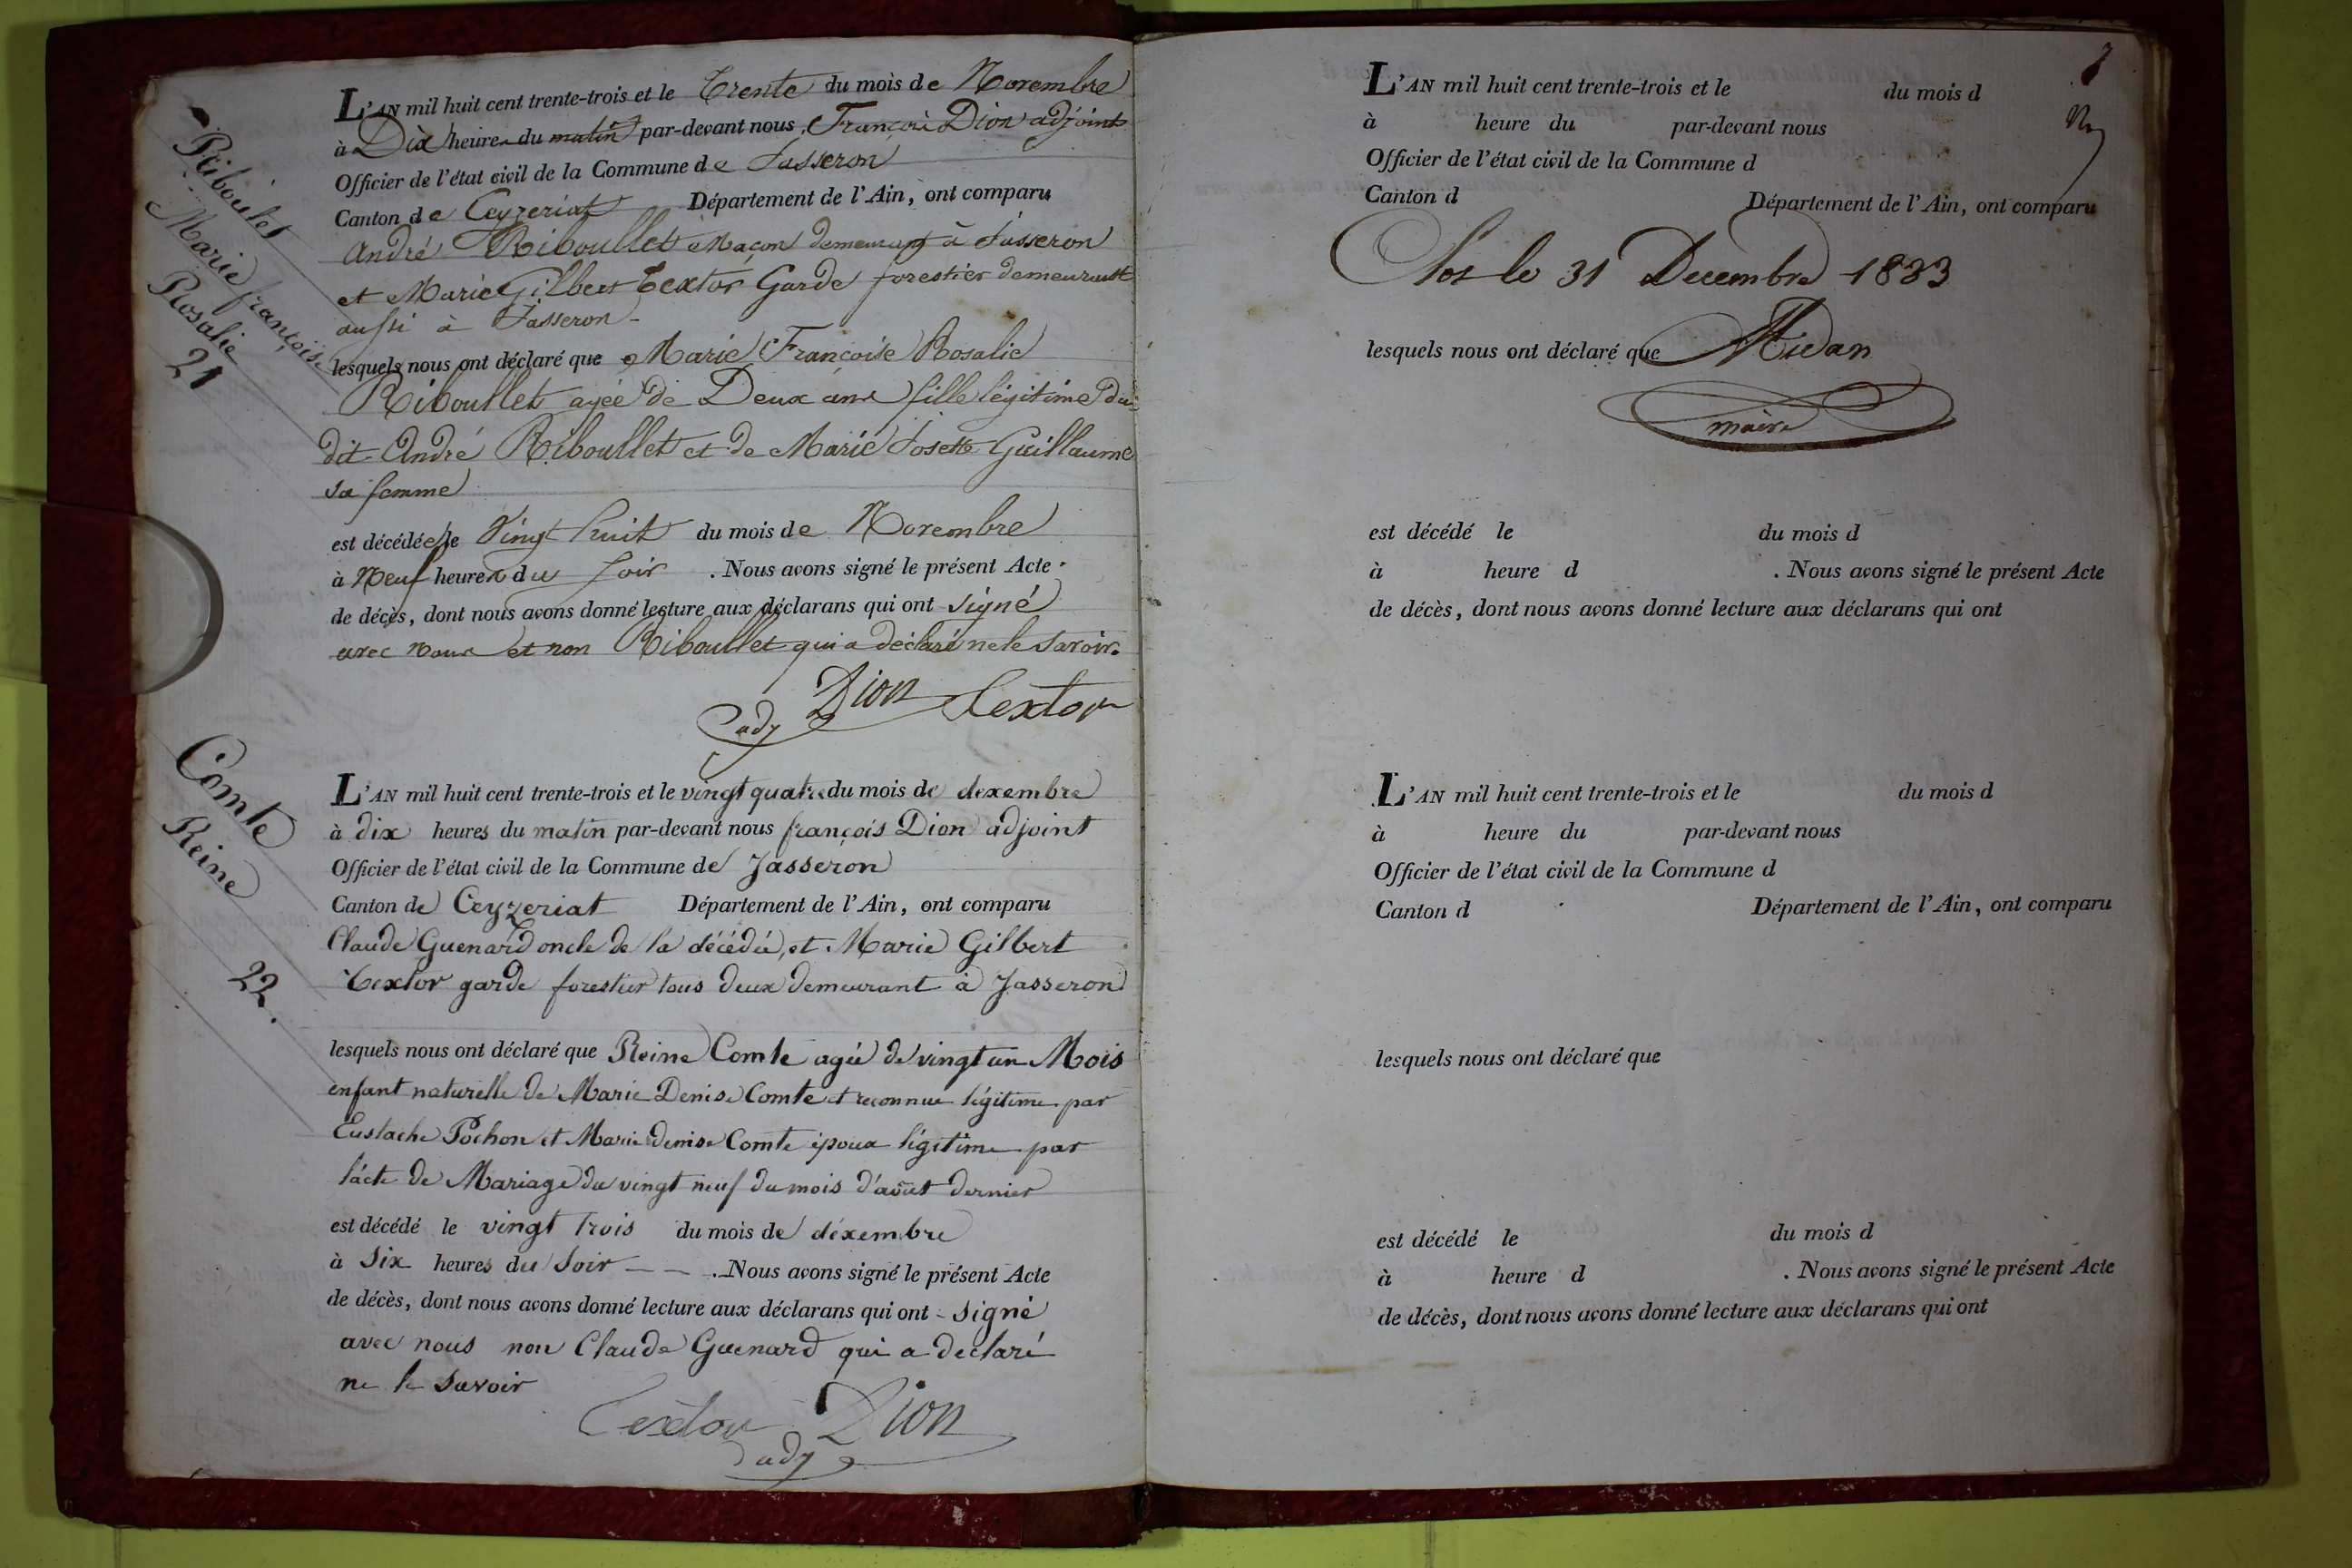 Riboulet
Marie françoise
Rosalie
21
L'AN mil huit cent trente-trois et le Trente du mois de Novembre
à Dix heures du matin par-devant nous, François Dion adjoint
Officier de l'état civil de la Commune de Jasseron
Canton de Ceyzeriat Département de l'Ain, ont comparu
André Riboullet Maçon demeurant à Jasseron
et Marie Gilbert Textor Garde forestier demeurant
aussi à Jasseron
lesquels nous ont déclaré que Marie Françoise Rosalie
Riboullet agée de Deux ans fille légitime du
dit André Riboullet et de Marie Josette Guillaume
sa femme
est décédée le Vingt huit du mois de Novembre
à Neuf heures du soir . Nous avons signé le présent Acte
de décès, dont nous avons donné lecture aux déclarans qui ont signé
avec nous et non Riboullet qui a déclaré ne le savoir.
Dion Textor
adj
Comte
Reine
22.
L'AN mil huit cent trente-trois et le vingt quatre du mois de dexembre
à dix heures du matin par-devant nous françois Dion adjoint
Officier de l'état civil de la Commune de Jasseron
Canton de Ceyzeriat Département de l'Ain, ont comparu
Claude Guenard oncle de la décédée, et Marie Gilbert
Textor garde forestier tous deux demeurant à Jasseron
lesquels nous ont déclaré que Reine Comte agée de vingt un Mois
enfant naturelle de Marie Denise Comte et reconnue légitime par
Eustache Pochon et Marie denise Comte époux légitime par
l'acte de Mariage du vingt neuf du mois d'août dernier
est décédé le vingt trois du mois de déxembre
à six heures du soir — — . Nous avons signé le présent Acte
de décès, dont nous avons donné lecture aux déclarans qui ont - signé
avec nous non Claude Guenard qui a declaré
ne le savoir
Textor Dion
adj
7
L'AN mil huit cent trente-trois et le du mois d
à heure du par-devant nous
Officier de l'état civil de la Commune d
Canton d Département de l'Ain, ont comparu
Clos le 31 Decembre 1833
lesquels nous ont déclaré que Midan
maire
est décédé le du mois d
à heure d . Nous avons signé le présent Acte
de décès, dont nous avons donné lecture aux déclarans qui ont
L'AN mil huit cent trente-trois et le du mois d
à heure du par-devant nous
Officier de l'état civil de la Commune d
Canton d Département de l'Ain, ont comparu
lesquels nous ont déclaré que
est décédé le du mois d
à heure d . Nous avons signé le présent Acte
de décès, dont nous avons donné lecture aux déclarans qui ont